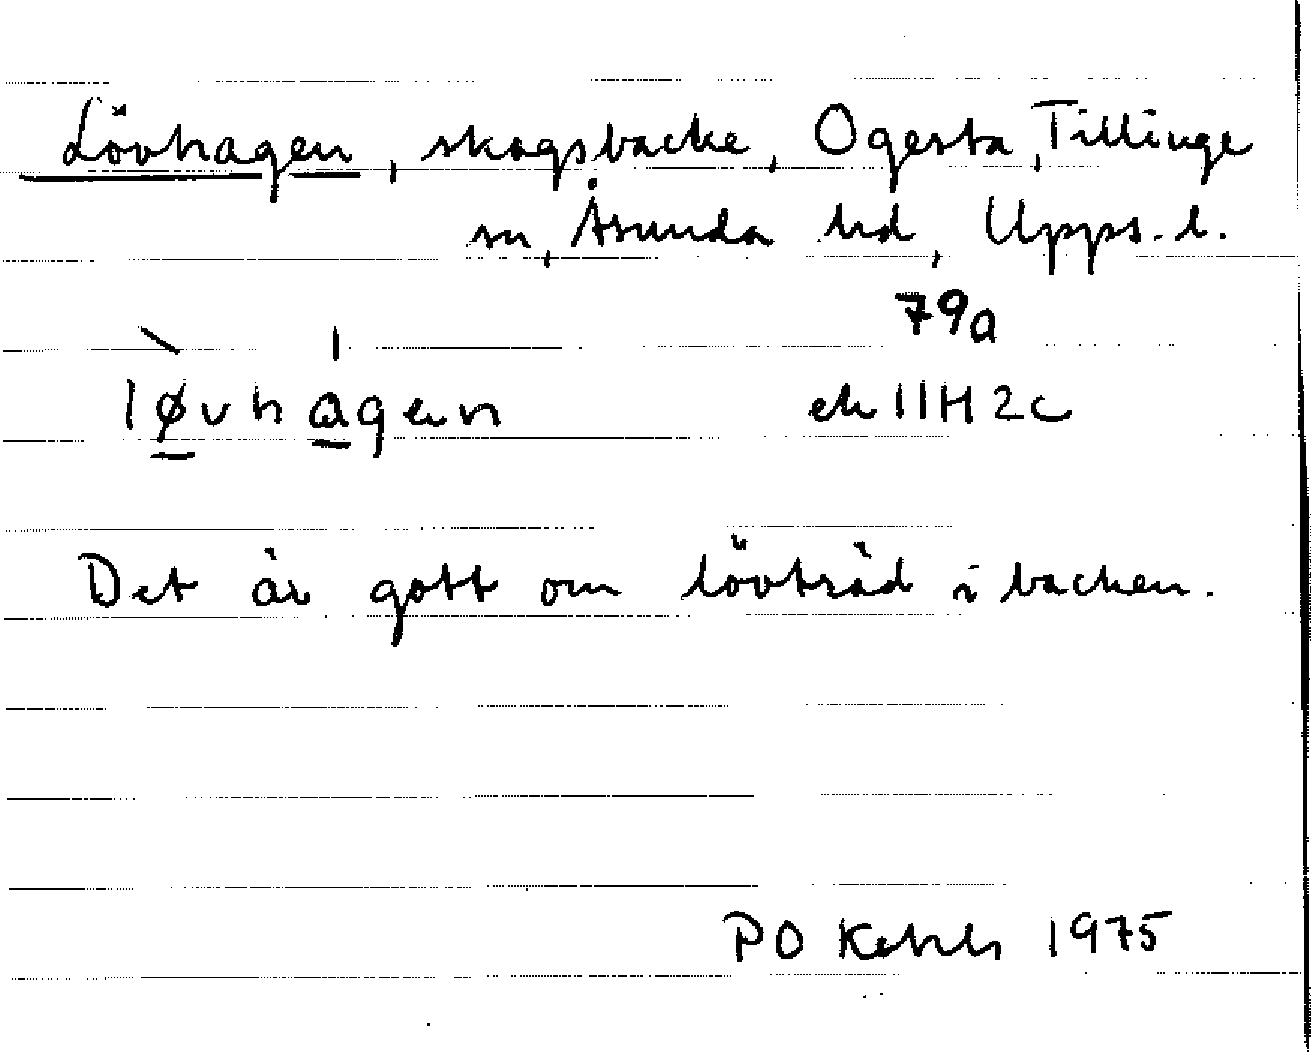 Lövhagen, skogsbacke, Ogesta, Tillinge
sn, Åsunda hd, Upps. l.
79a
løvhagen ek 11H2c
Det är gott om lövträd i backen.
PO 1975